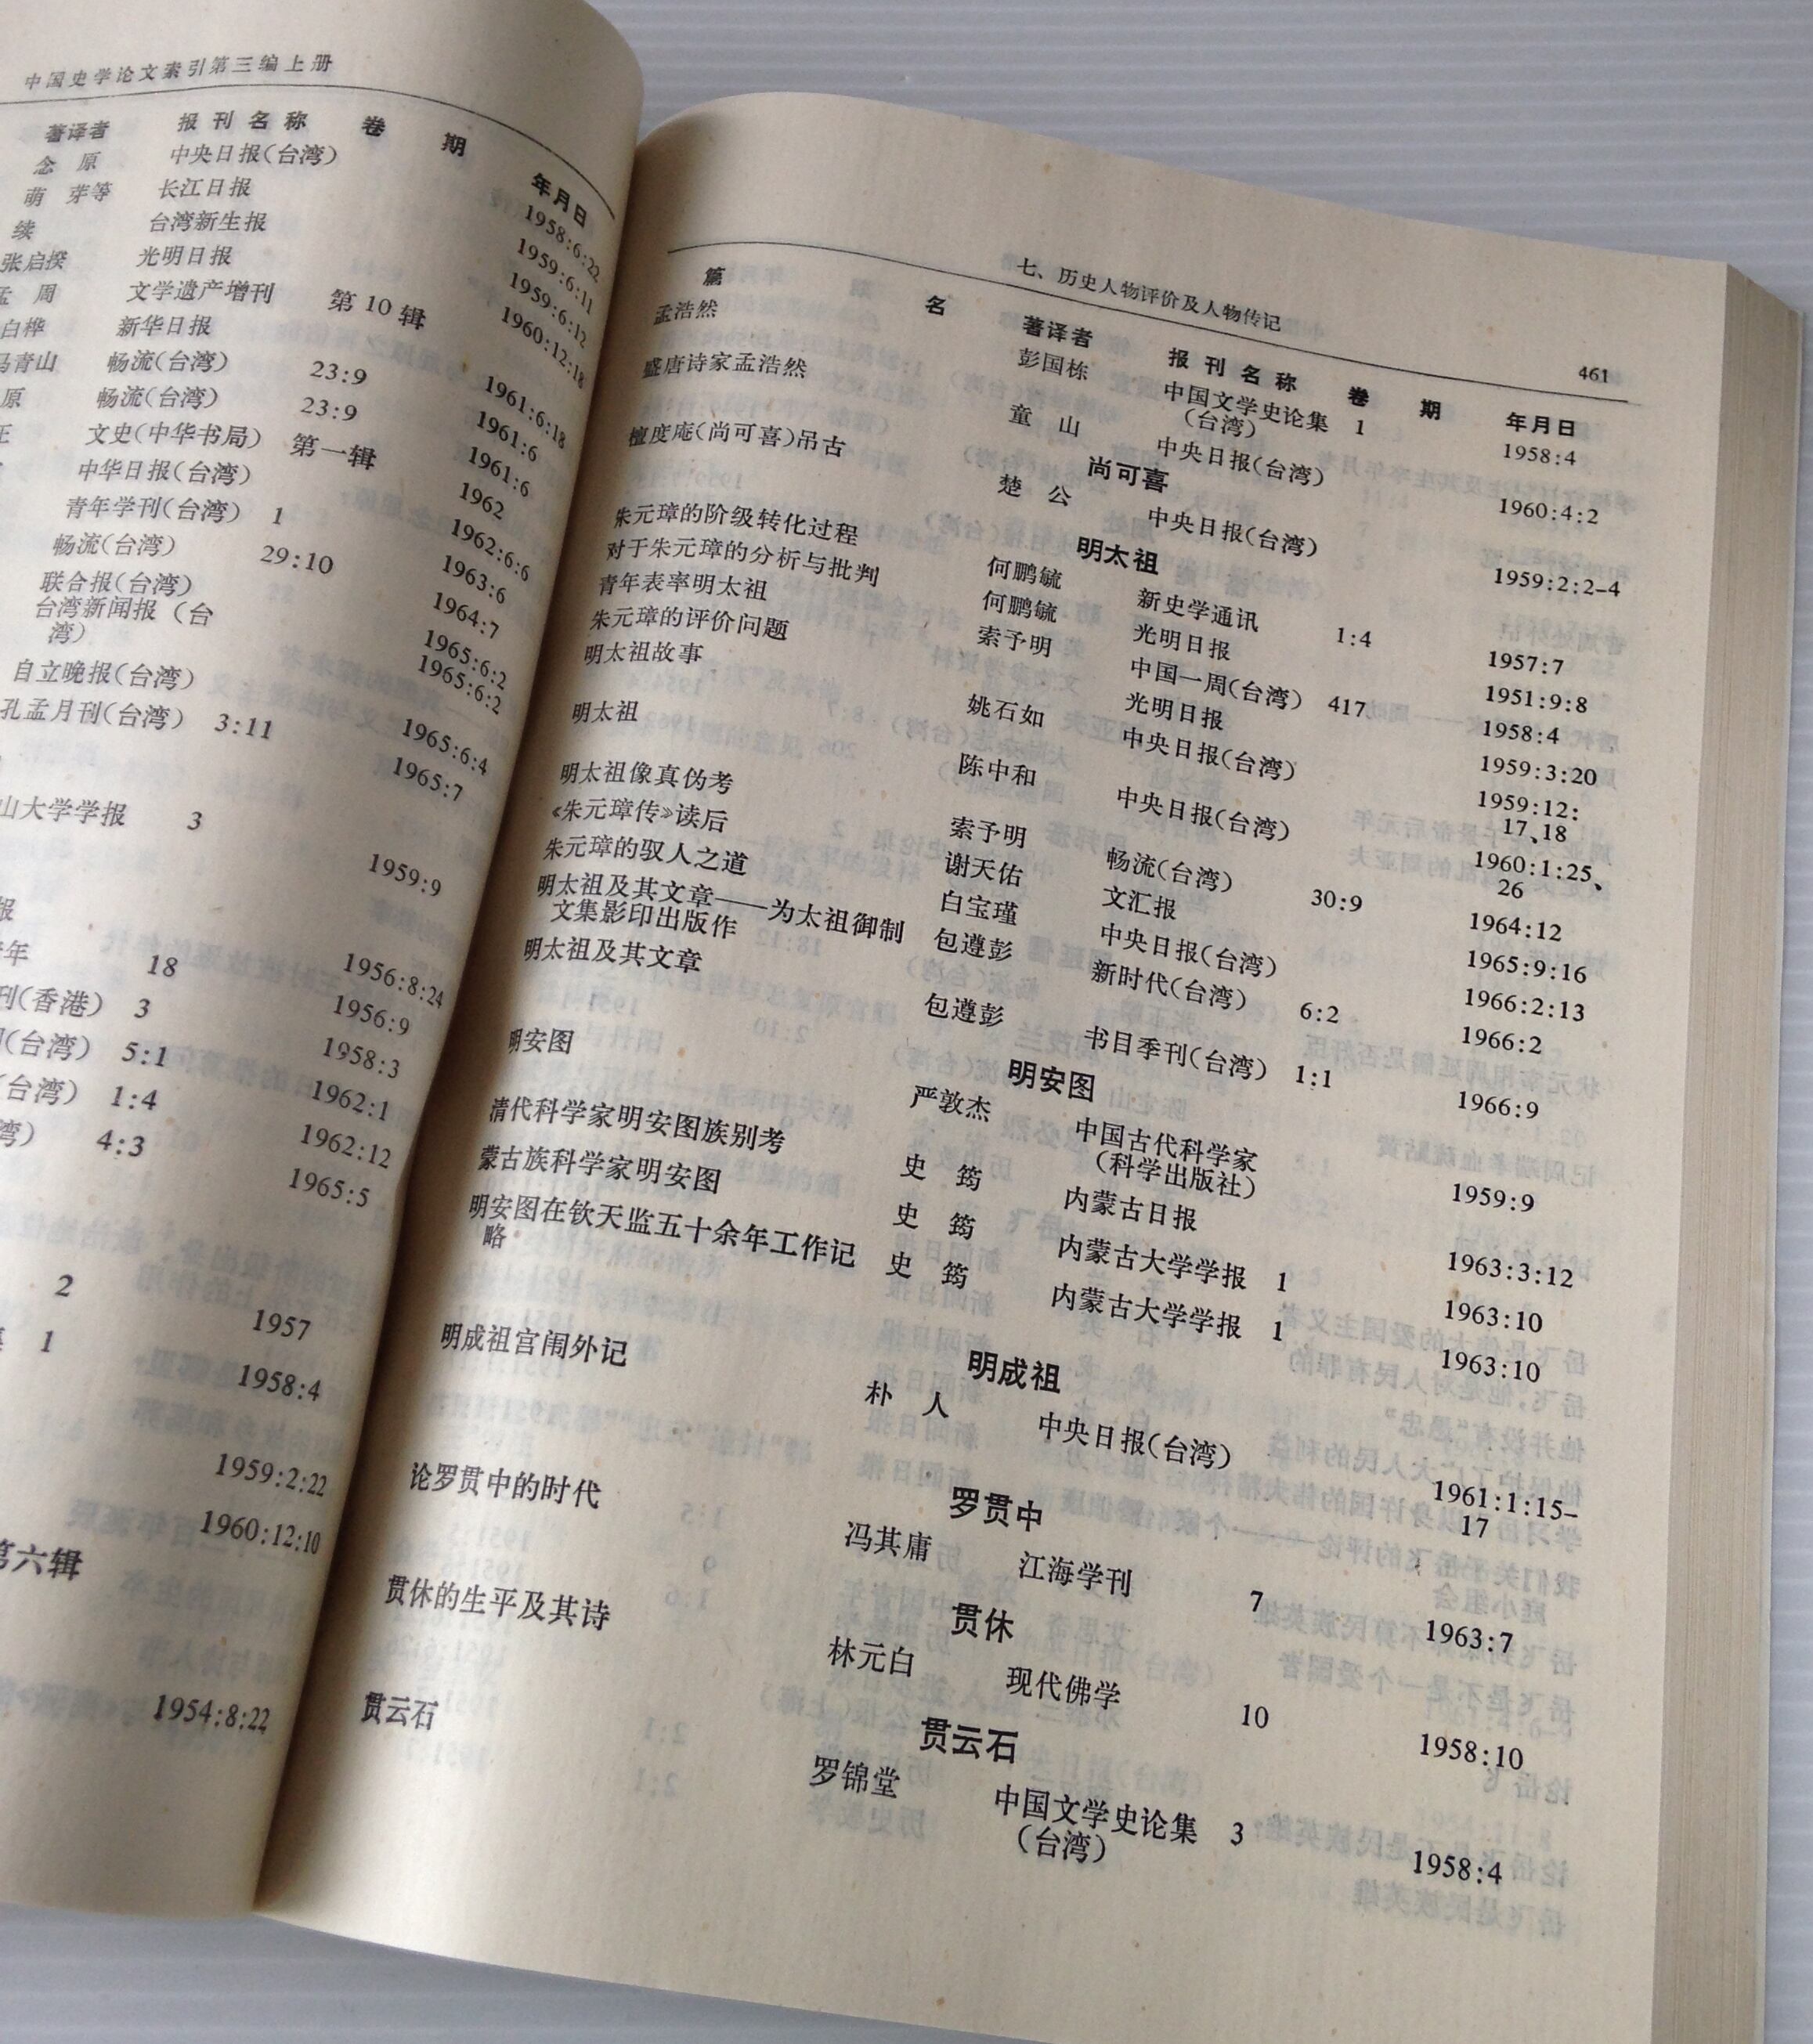 中国史学论文索引第三编上册
著译者 报刊名称 卷 期 年月日
念 原 中央日报(台湾) 1958:6:22
萌 芽等 长江日报 1959:6:11
续 台湾新生报 1959:6:12
张启揆 光明日报 1960:12:18
孟 周 文学遗产增刊 第10辑
白桦 新华日报 1961:6:18
马青山 畅流(台湾) 23:9 1961:6
原 畅流(台湾) 23:9 1961:6
王 文史(中华书局) 第一辑 1962
中华日报(台湾) 1962:6:6
青年学刊(台湾) 1 1963:6
畅流(台湾) 29:10 1964:7
联合报(台湾) 1965:6:2
台湾新闻报(台 1965:6:2
湾)
自立晚报(台湾) 1965:6:4
孔孟月刊(台湾) 3:11 1965:7
山大学学报 3 1959:9
报 1956:8:24
年 18 1956:9
刊(香港) 3 1958:3
(台湾) 5:1 1962:1
(台湾) 1:4 1962:12
湾) 4:3 1965:5
2 1957
1 1958:4
1959:2:22
1960:12:10
第六辑
1954:8:22
七、历史人物评价及人物传记 461
篇 名 著译者 报刊名称 卷 期 年月日
孟浩然 彭国栋 中国文学史论集 1 1958:4
(台湾)
盛唐诗家孟浩然 童 山 中央日报(台湾) 1960:4:2
尚可喜
檀度庵(尚可喜)吊古 楚 公 中央日报(台湾) 1959:2:2-4
明太祖
朱元璋的阶级转化过程 何鹏毓 新史学通讯 1:4 1957:7
对于朱元璋的分析与批判 何鹏毓 光明日报 1951:9:8
青年表率明太祖 索予明 中国一周(台湾) 417 1958:4
朱元璋的评价问题 光明日报 1959:3:20
明太祖故事 姚石如 中央日报(台湾) 1959:12:
17、18
明太祖 陈中和 中央日报(台湾) 1960:1:25、
26
明太祖像真伪考 索予明 畅流(台湾) 30:9 1964:12
《朱元璋传》读后 谢天佑 文汇报 1965:9:16
朱元璋的驭人之道 白宝瑾 中央日报(台湾) 1966:2:13
明太祖及其文章——为太祖御制 包遵彭 新时代(台湾) 6:2 1966:2
文集影印出版作
明太祖及其文章 包遵彭 书目季刊(台湾) 1:1 1966:9
明安图
明安图 严敦杰 中国古代科学家 1959:9
(科学出版社)
清代科学家明安图族别考 史 筠 内蒙古日报 1963:3:12
蒙古族科学家明安图 史 筠 内蒙古大学学报 1 1963:10
明安图在钦天监五十余年工作记 史 筠 内蒙古大学学报 1 1963:10
略
明成祖
明成祖宫闱外记 朴 人 中央日报(台湾) 1961:1:15-
17
罗贯中
论罗贯中的时代 冯其庸 江海学刊 7 1963:7
贯休
贯休的生平及其诗 林元白 现代佛学 10 1958:10
贯云石
贯云石 罗锦堂 中国文学史论集 3 1958:4
(台湾)